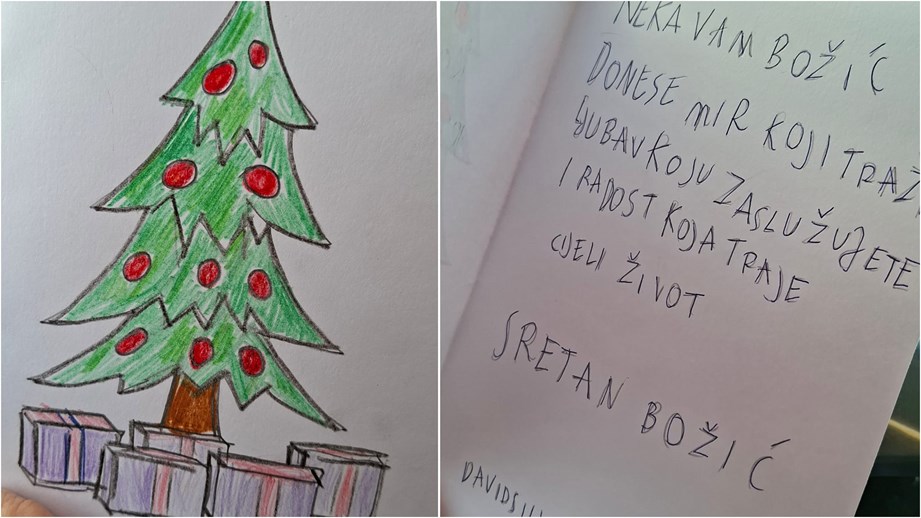 NEKA VAM BOŽIĆ
DONESE MIR KOJI
LJUBAV KOJU ZASLUŽUJETE
I RADOST KOJA TRAJE
CIJELI ŽIVOT
SRETAN BOŽIĆ